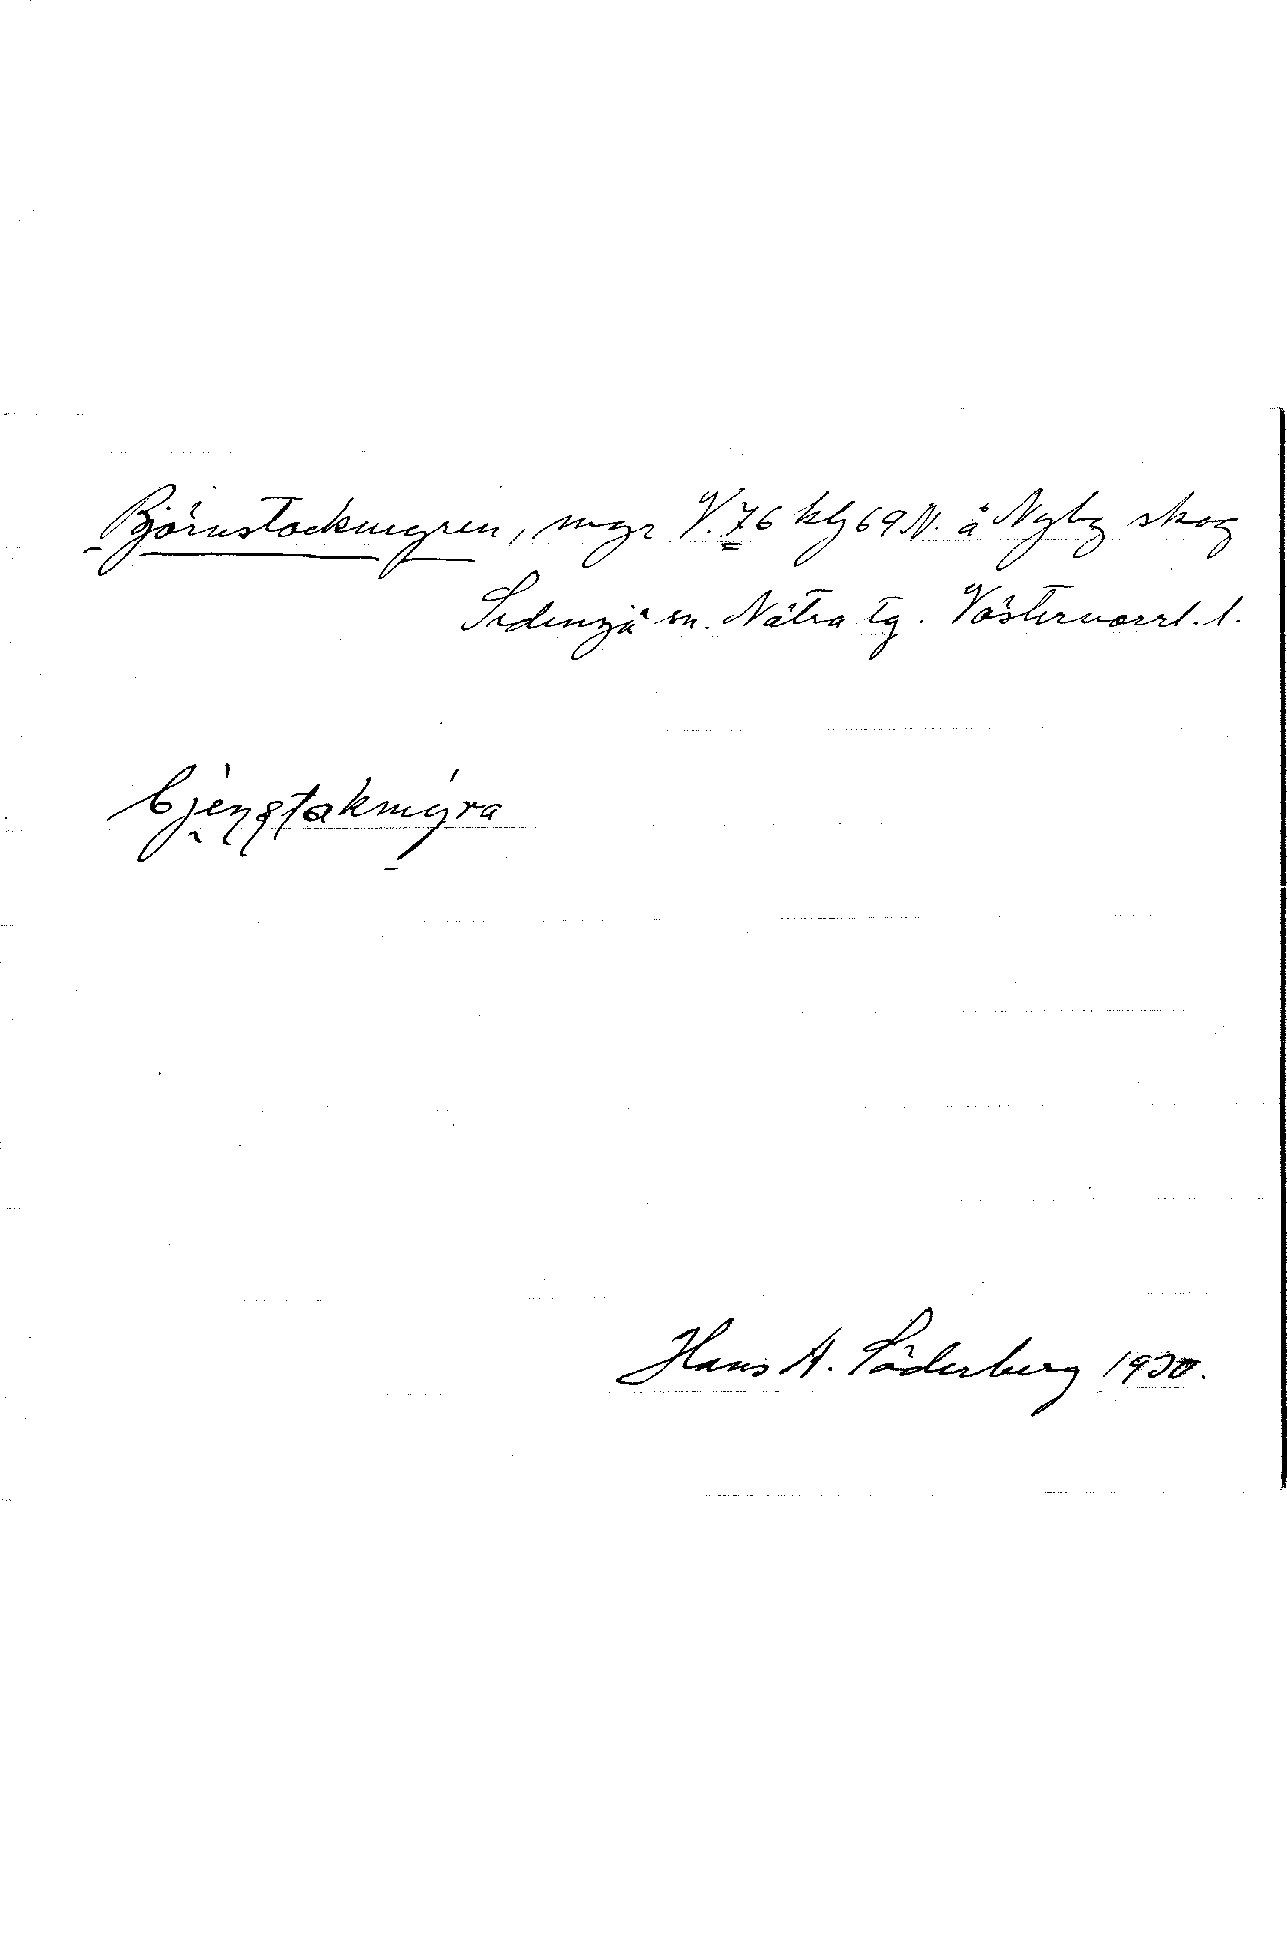 Björnstockmyren, myr V. 76 klj 69 N. å Nyby skog
Sidensjö sn. Nätra tg. Västernorrl. l.
Hans A. Söderberg 1930.